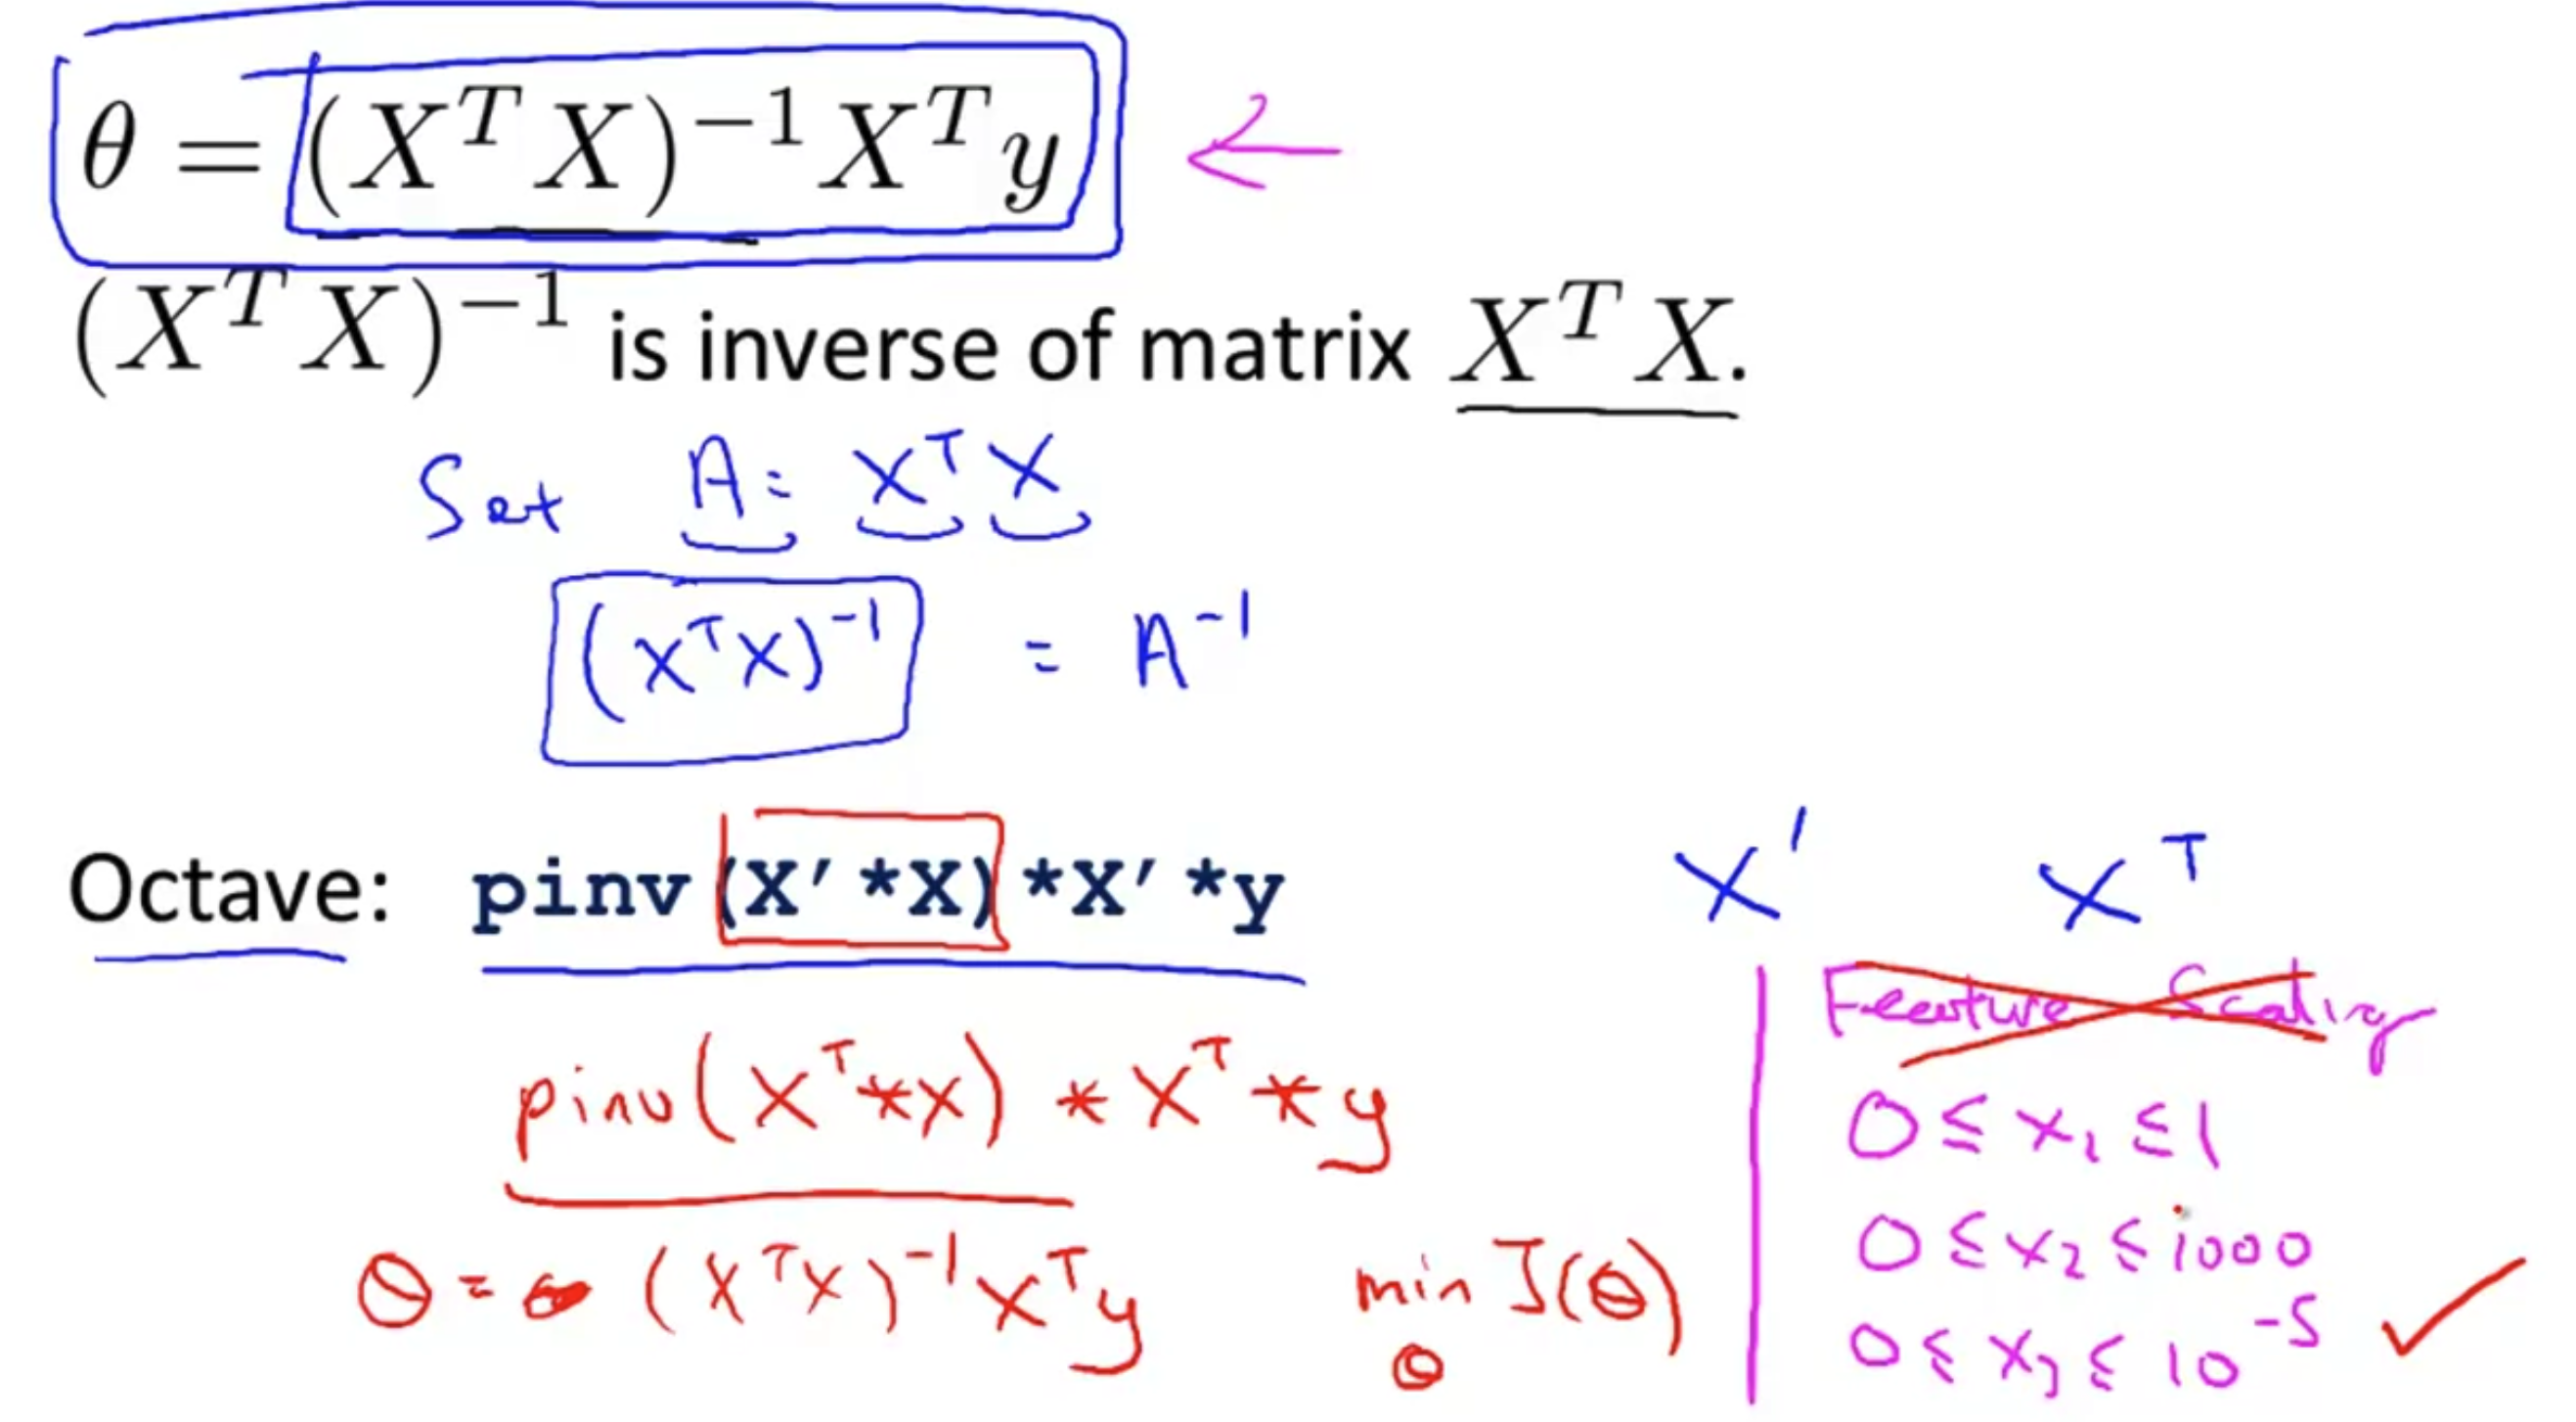 θ = (XᵀX)⁻¹Xᵀy ←
(XᵀX)⁻¹ is inverse of matrix XᵀX.
Set A = XᵀX
(XᵀX)⁻¹ = A⁻¹
Octave: pinv(X'*X)*X'*y
X' Xᵀ
pinv(Xᵀ*X)*Xᵀ*y
θ = (XᵀX)⁻¹Xᵀy
min J(θ)
θ
Feature Scaling
0 ≤ x₁ ≤ 1
0 ≤ x₂ ≤ 1000
0 ≤ x₃ ≤ 10⁻⁵ ✓